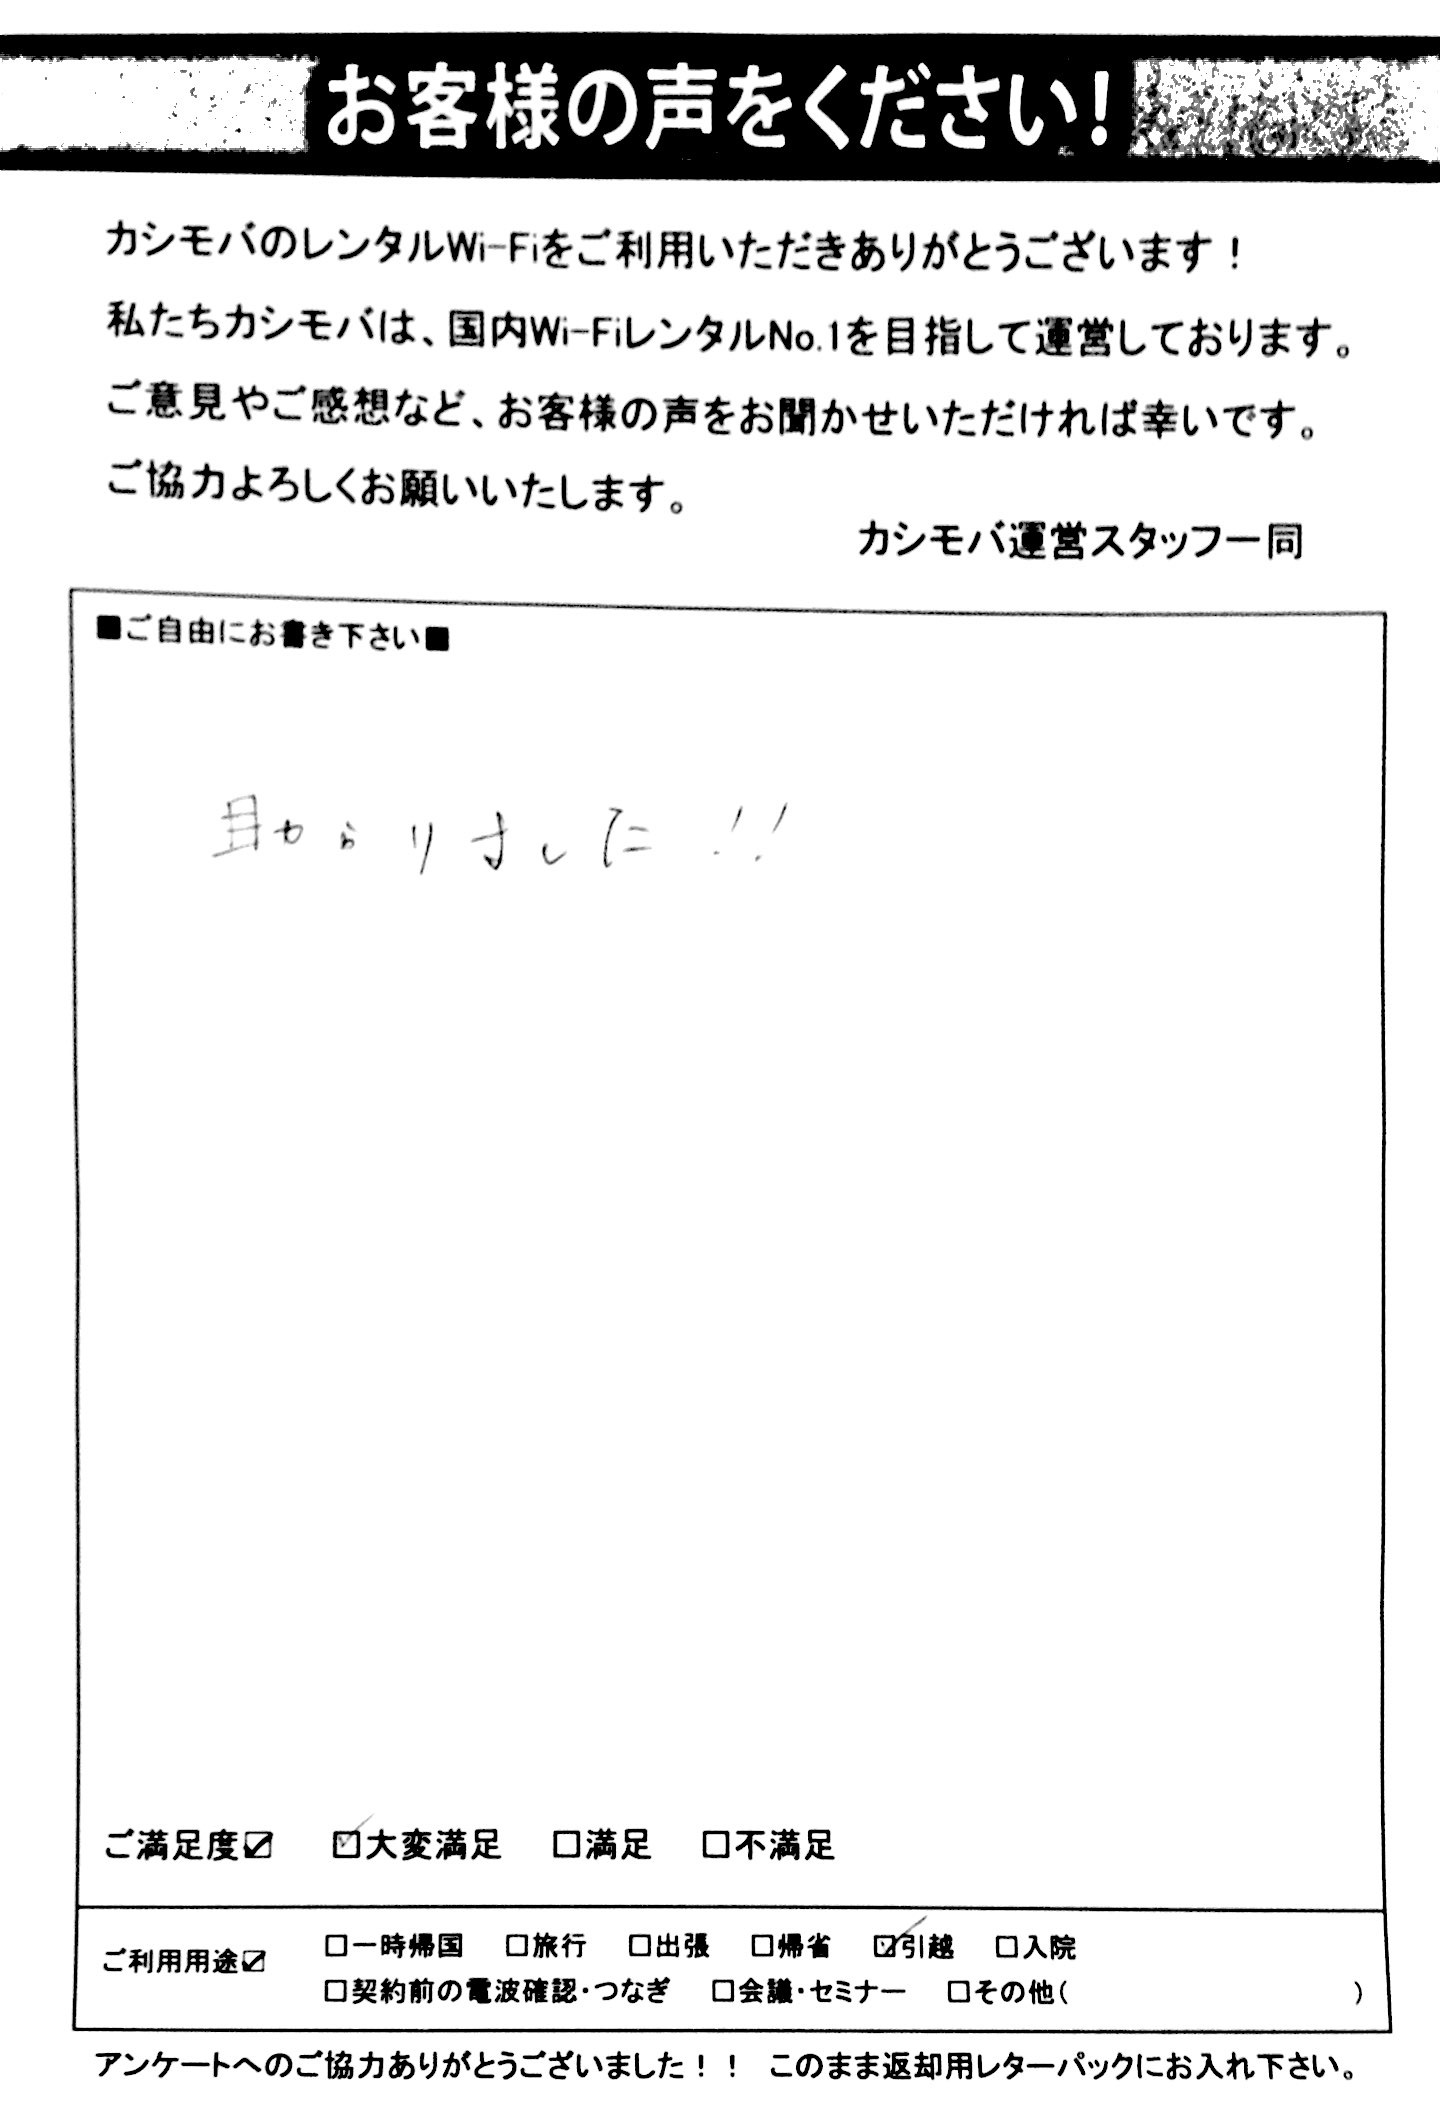 お客様の声をください!
カシモバのレンタルWi-Fiをご利用いただきありがとうございます！
私たちカシモバは、国内Wi-FiレンタルNo.1を目指して運営しております。
ご意見やご感想など、お客様の声をお聞かせいただければ幸いです。
ご協力よろしくお願いいたします。
カシモバ運営スタッフ一同
■ご自由にお書き下さい■
助からりました!!
ご満足度☑ ☑大変満足 □満足 □不満足
ご利用用途☑ □一時帰国 □旅行 □出張 □帰省 ☑引越 □入院
□契約前の電波確認・つなぎ □会議・セミナー □その他( )
アンケートへのご協力ありがとうございました！！ このまま返却用レターパックにお入れ下さい。